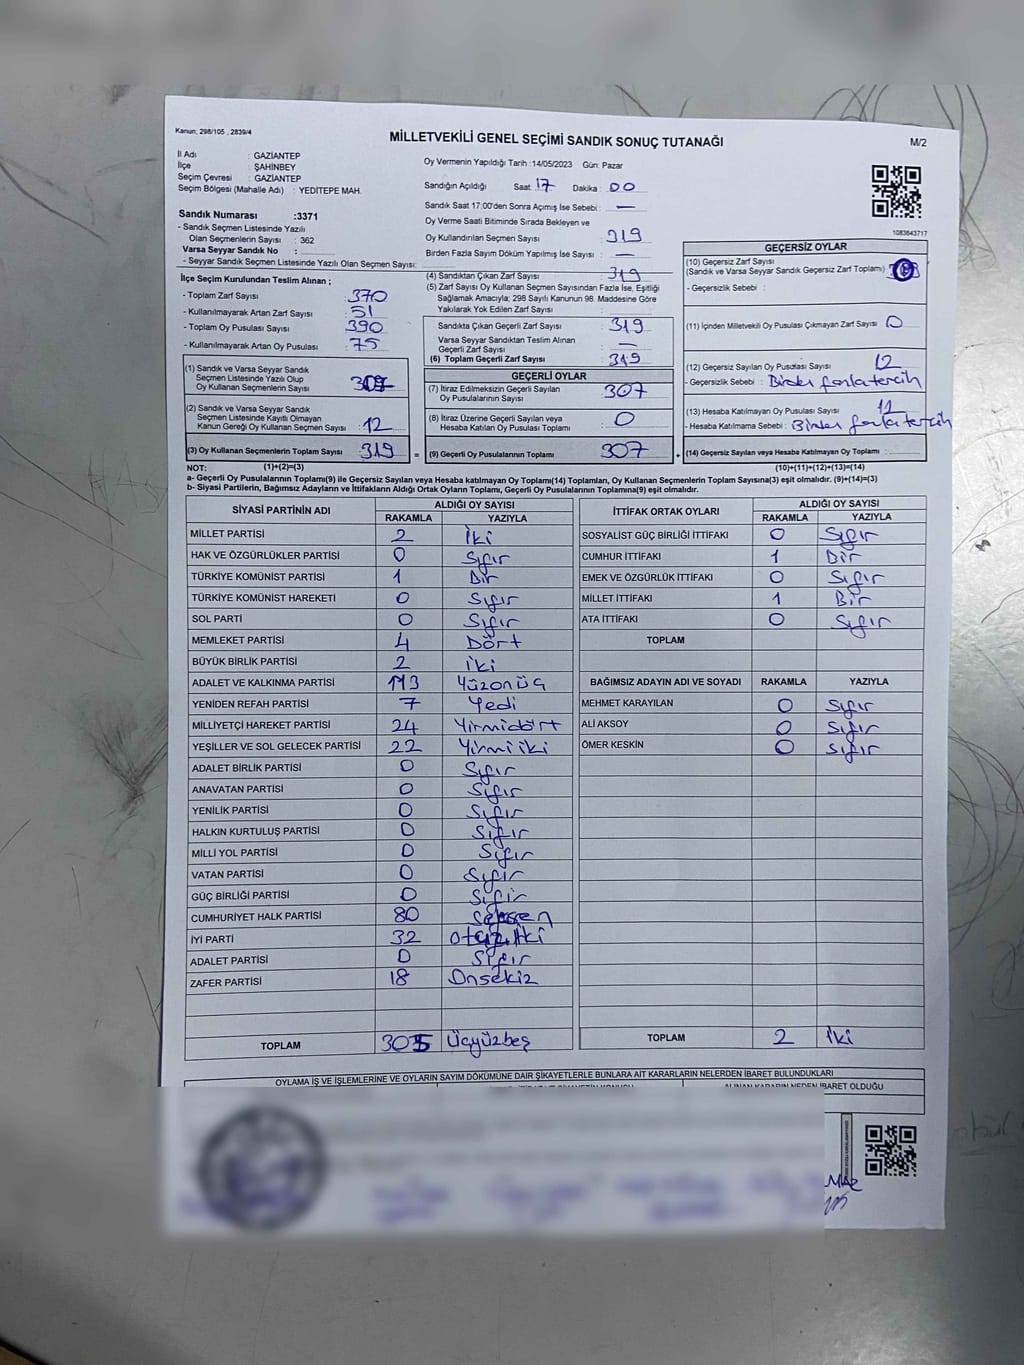 Kanun: 298/105 , 2839/4
MİLLETVEKİLİ GENEL SEÇİMİ SANDIK SONUÇ TUTANAĞI
M/2
İl Adı : GAZİANTEP
İlçe : ŞAHİNBEY
Seçim Çevresi : GAZİANTEP
Seçim Bölgesi (Mahalle Adı) : YEDİTEPE MAH.
Sandık Numarası :3371
- Sandık Seçmen Listesinde Yazılı
Olan Seçmenlerin Sayısı : 362
Varsa Seyyar Sandık No :
- Seyyar Sandık Seçmen Listesinde Yazılı Olan Seçmen Sayısı:
Oy Vermenin Yapıldığı Tarih : 14/05/2023 Gün: Pazar
Sandığın Açıldığı Saat: 17 Dakika : 00
Sandık Saat 17:00'den Sonra Açımış İse Sebebi : —
Oy Verme Saati Bitiminde Sırada Bekleyen ve
Oy Kullandırılan Seçmen Sayısı : 319
Birden Fazla Sayım Döküm Yapılmış İse Sayısı : —
1083643717
İlçe Seçim Kurulundan Teslim Alınan ;
- Toplam Zarf Sayısı : 370
- Kullanılmayarak Artan Zarf Sayısı : 51
- Toplam Oy Pusulası Sayısı : 390
- Kullanılmayarak Artan Oy Pusulası : 75
(1) Sandık ve Varsa Seyyar Sandık
Seçmen Listesinde Yazılı Olup
Oy Kullanan Seçmenlerin Sayısı : 307
(2) Sandık ve Varsa Seyyar Sandık
Seçmen Listesinde Kayıtlı Olmayan
Kanun Gereği Oy Kullanan Seçmen Sayısı : 12
(3) Oy Kullanan Seçmenlerin Toplam Sayısı : 319
(4) Sandıktan Çıkan Zarf Sayısı : 319
(5) Zarf Sayısı Oy Kullanan Seçmen Sayısından Fazla İse, Eşitliği
Sağlamak Amacıyla; 298 Sayılı Kanunun 98. Maddesine Göre
Yakılarak Yok Edilen Zarf Sayısı :
Sandıkta Çıkan Geçerli Zarf Sayısı : 319
Varsa Seyyar Sandıktan Teslim Alınan
Geçerli Zarf Sayısı : —
(6) Toplam Geçerli Zarf Sayısı : 319
GEÇERLİ OYLAR
(7) İtiraz Edilmeksizin Geçerli Sayılan
Oy Pusulalarının Sayısı : 307
(8) İtiraz Üzerine Geçerli Sayılan veya
Hesaba Katılan Oy Pusulası Toplamı : 0
= (9) Geçerli Oy Pusulalarının Toplamı : 307
GEÇERSİZ OYLAR
(10) Geçersiz Zarf Sayısı
(Sandık ve Varsa Seyyar Sandık Geçersiz Zarf Toplamı) :
- Geçersizlik Sebebi :
(11) İçinden Milletvekili Oy Pusulası Çıkmayan Zarf Sayısı : 0
(12) Geçersiz Sayılan Oy Pusulası Sayısı : 12
- Geçersizlik Sebebi : Birden fazla tercih
(13) Hesaba Katılmayan Oy Pusulası Sayısı : 11
- Hesaba Katılmama Sebebi : Birden fazla tercih
+ (14) Geçersiz Sayılan veya Hesaba Katılmayan Oy Toplamı :
NOT: (1)+(2)=(3) (10)+(11)+(12)+(13)=(14)
a- Geçerli Oy Pusulalarının Toplamı(9) ile Geçersiz Sayılan veya Hesaba Katılmayan Oy Toplamı(14) Toplamları, Oy Kullanan Seçmenlerin Toplam Sayısına(3) eşit olmalıdır. (9)+(14)=(3)
b- Siyasi Partilerin, Bağımsız Adayların ve İttifakların Aldığı Ortak Oyların Toplamı, Geçerli Oy Pusulalarının Toplamına(9) eşit olmalıdır.
SİYASİ PARTİNİN ADI ALDIĞI OY SAYISI
RAKAMLA YAZIYLA
MİLLET PARTİSİ 2 İki
HAK VE ÖZGÜRLÜKLER PARTİSİ 0 Sıfır
TÜRKİYE KOMÜNİST PARTİSİ 1 Bir
TÜRKİYE KOMÜNİST HAREKETİ 0 Sıfır
SOL PARTİ 0 Sıfır
MEMLEKET PARTİSİ 4 Dört
BÜYÜK BİRLİK PARTİSİ 2 İki
ADALET VE KALKINMA PARTİSİ 113 Yüzonüç
YENİDEN REFAH PARTİSİ 7 Yedi
MİLLİYETÇİ HAREKET PARTİSİ 24 Yirmidört
YEŞİLLER VE SOL GELECEK PARTİSİ 22 Yirmiiki
ADALET BİRLİK PARTİSİ 0 Sıfır
ANAVATAN PARTİSİ 0 Sıfır
YENİLİK PARTİSİ 0 Sıfır
HALKIN KURTULUŞ PARTİSİ 0 Sıfır
MİLLİ YOL PARTİSİ 0 Sıfır
VATAN PARTİSİ 0 Sıfır
GÜÇ BİRLİĞİ PARTİSİ 0 Sıfır
CUMHURİYET HALK PARTİSİ 80 Seksen
İYİ PARTİ 32 Otuziki
ADALET PARTİSİ 0 Sıfır
ZAFER PARTİSİ 18 Onsekiz
TOPLAM 305 Üçyüzbeş
İTTİFAK ORTAK OYLARI ALDIĞI OY SAYISI
RAKAMLA YAZIYLA
SOSYALİST GÜÇ BİRLİĞİ İTTİFAKI 0 Sıfır
CUMHUR İTTİFAKI 1 Bir
EMEK VE ÖZGÜRLÜK İTTİFAKI 0 Sıfır
MİLLET İTTİFAKI 1 Bir
ATA İTTİFAKI 0 Sıfır
TOPLAM
BAĞIMSIZ ADAYIN ADI VE SOYADI RAKAMLA YAZIYLA
MEHMET KARAYILAN 0 Sıfır
ALİ AKSOY 0 Sıfır
ÖMER KESKİN 0 Sıfır
TOPLAM 2 İki
OYLAMA İŞ VE İŞLEMLERİNE VE OYLARIN SAYIM DÖKÜMÜNE DAİR ŞİKAYETLERLE BUNLARA AİT KARARLARIN NELERDEN İBARET BULUNDUKLARI
ALINAN KARARIN NEDEN İBARET OLDUĞU